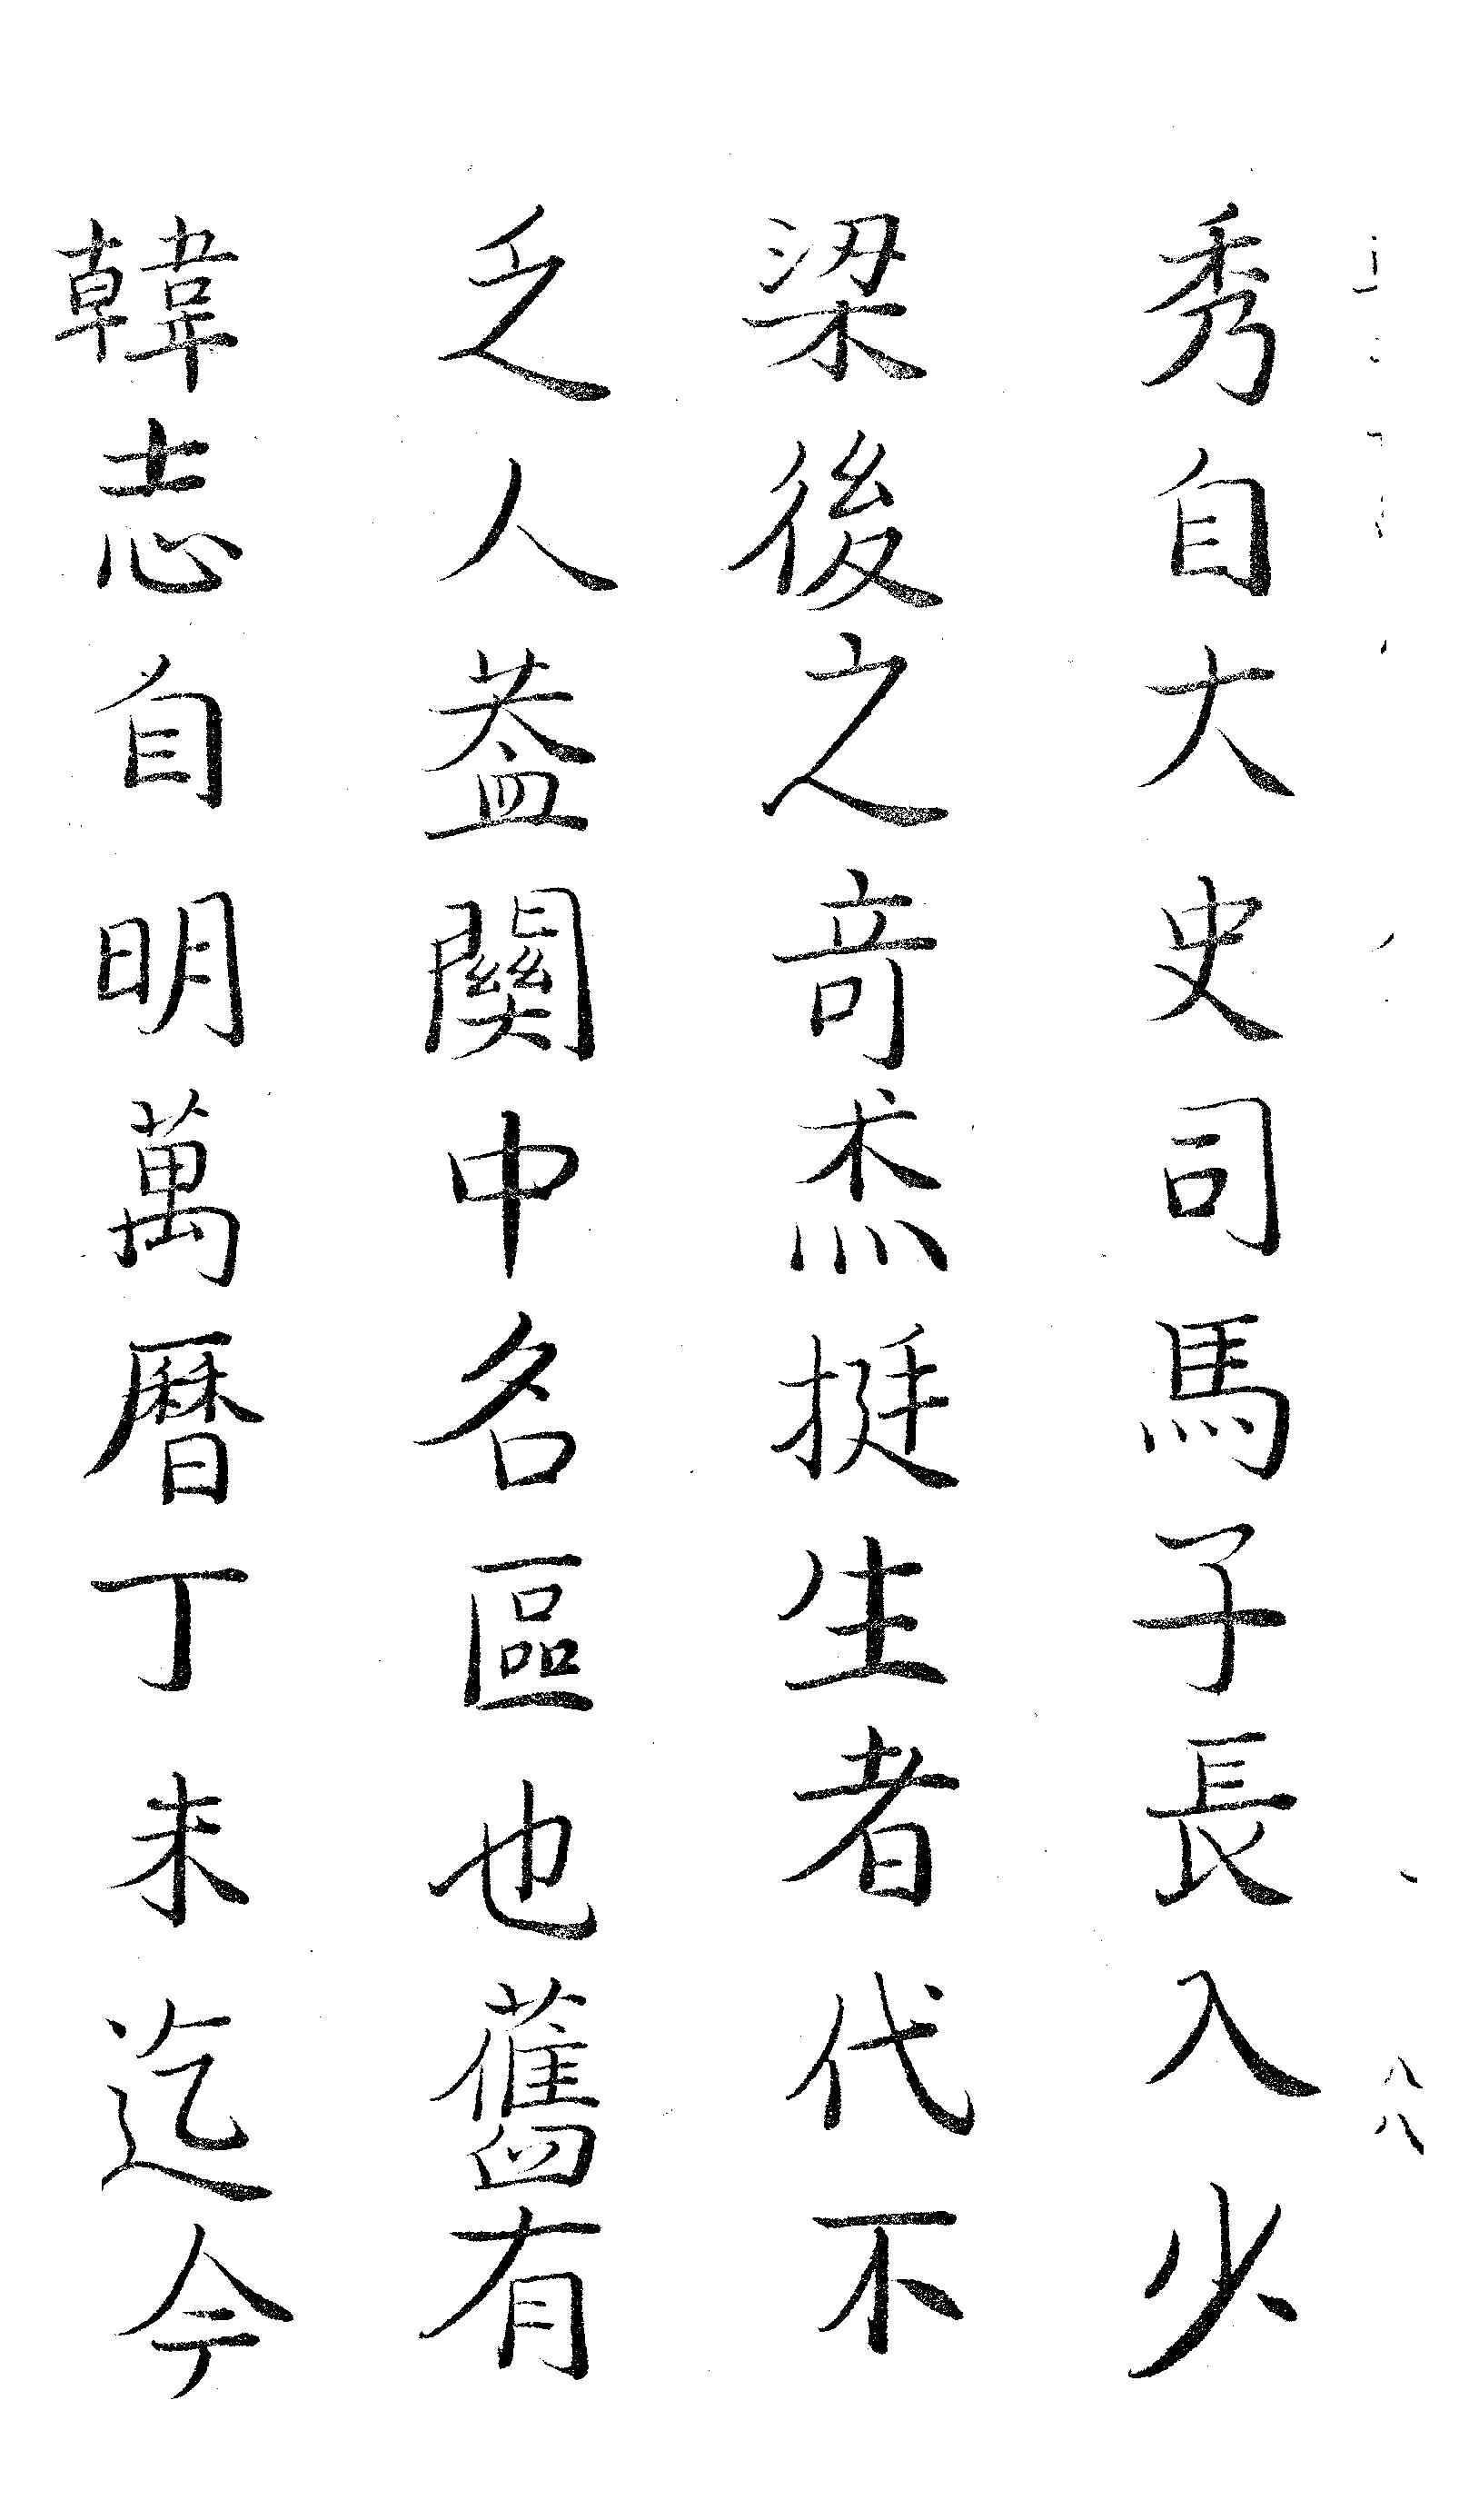 秀自大史司馬子長入少
梁後之竒杰挺生者代不
乏人葢關中名區也舊有
韓志自明萬曆丁未迄今